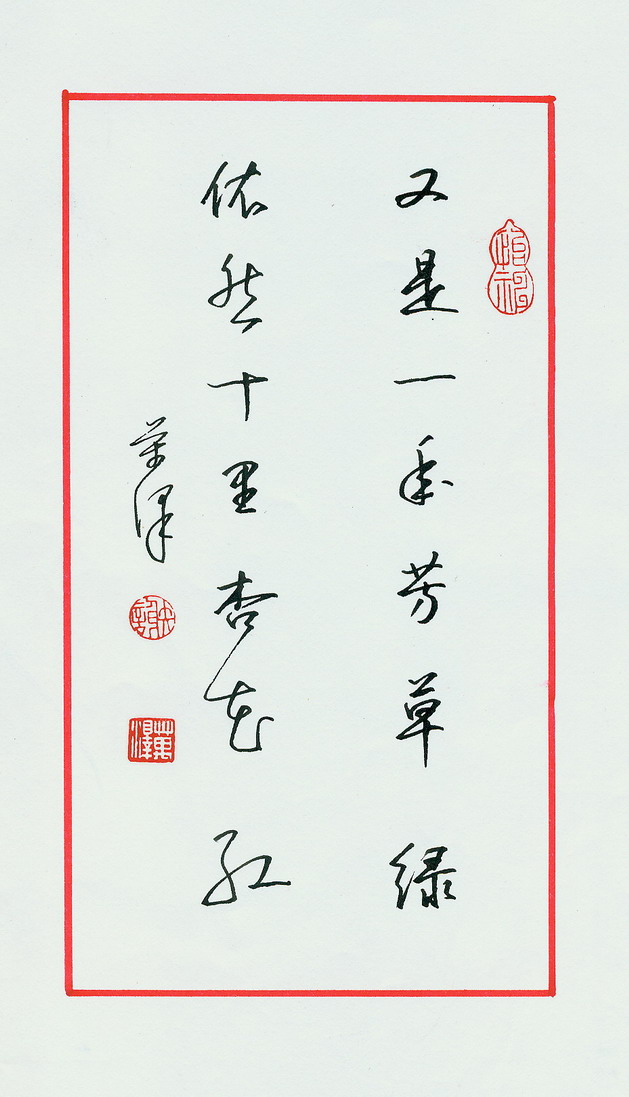 又是一年芳草绿
依然十里杏花红
萬泽
萬澤